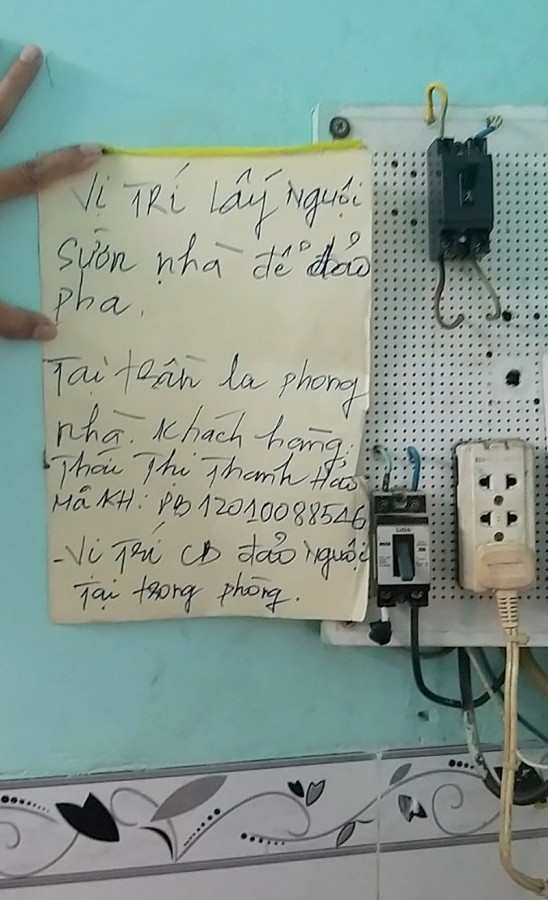 Vị TRí Lấy Nguội
Sườn nhà để đảo
pha.
Tại trần la phong
nhà. Khách hàng:
Thái Thị Thanh Hảo
Mã KH: PB12010088546
-Vị Trí CB đảo nguội
Tại trong phòng.